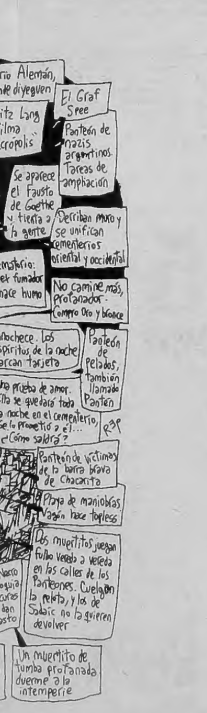 rio Alemán,
nde diyeguen
El Graf
Spee
itz Lang
ilma
crópolis"
Panteón de
nazis
argentinos.
Tareas de
ampliación
Se aparece
el Fausto
de Goethe
y tienta a
la gente
Derriban muro y
se unifican
cementerios
oriental y occidental
ematorio:
ex fumador
hace humo
No camine más,
profanador.
Compro oro y bronce
nochece. Los
spíritus de la noche
arcan tarjeta
Panteón
de
pelados,
también
llamado
Pantén
na prueba de amor.
lla se quedará toda
a noche en el cementerio,
se lo prometió a él...
¿Cómo saldrá?
Panteón de víctimas
de la barra brava
de Chacarita
Playa de maniobras
Vagón hace topless
Dos muertitos juegan
fulbo vereda a vereda
en las calles de los
Panteones. Cuelgan
la pelota, y los de
Sadaic no la quieren
devolver
oguia
curas
dan
asto
Un muertito de
tumba profanada
duerme a la
intemperie